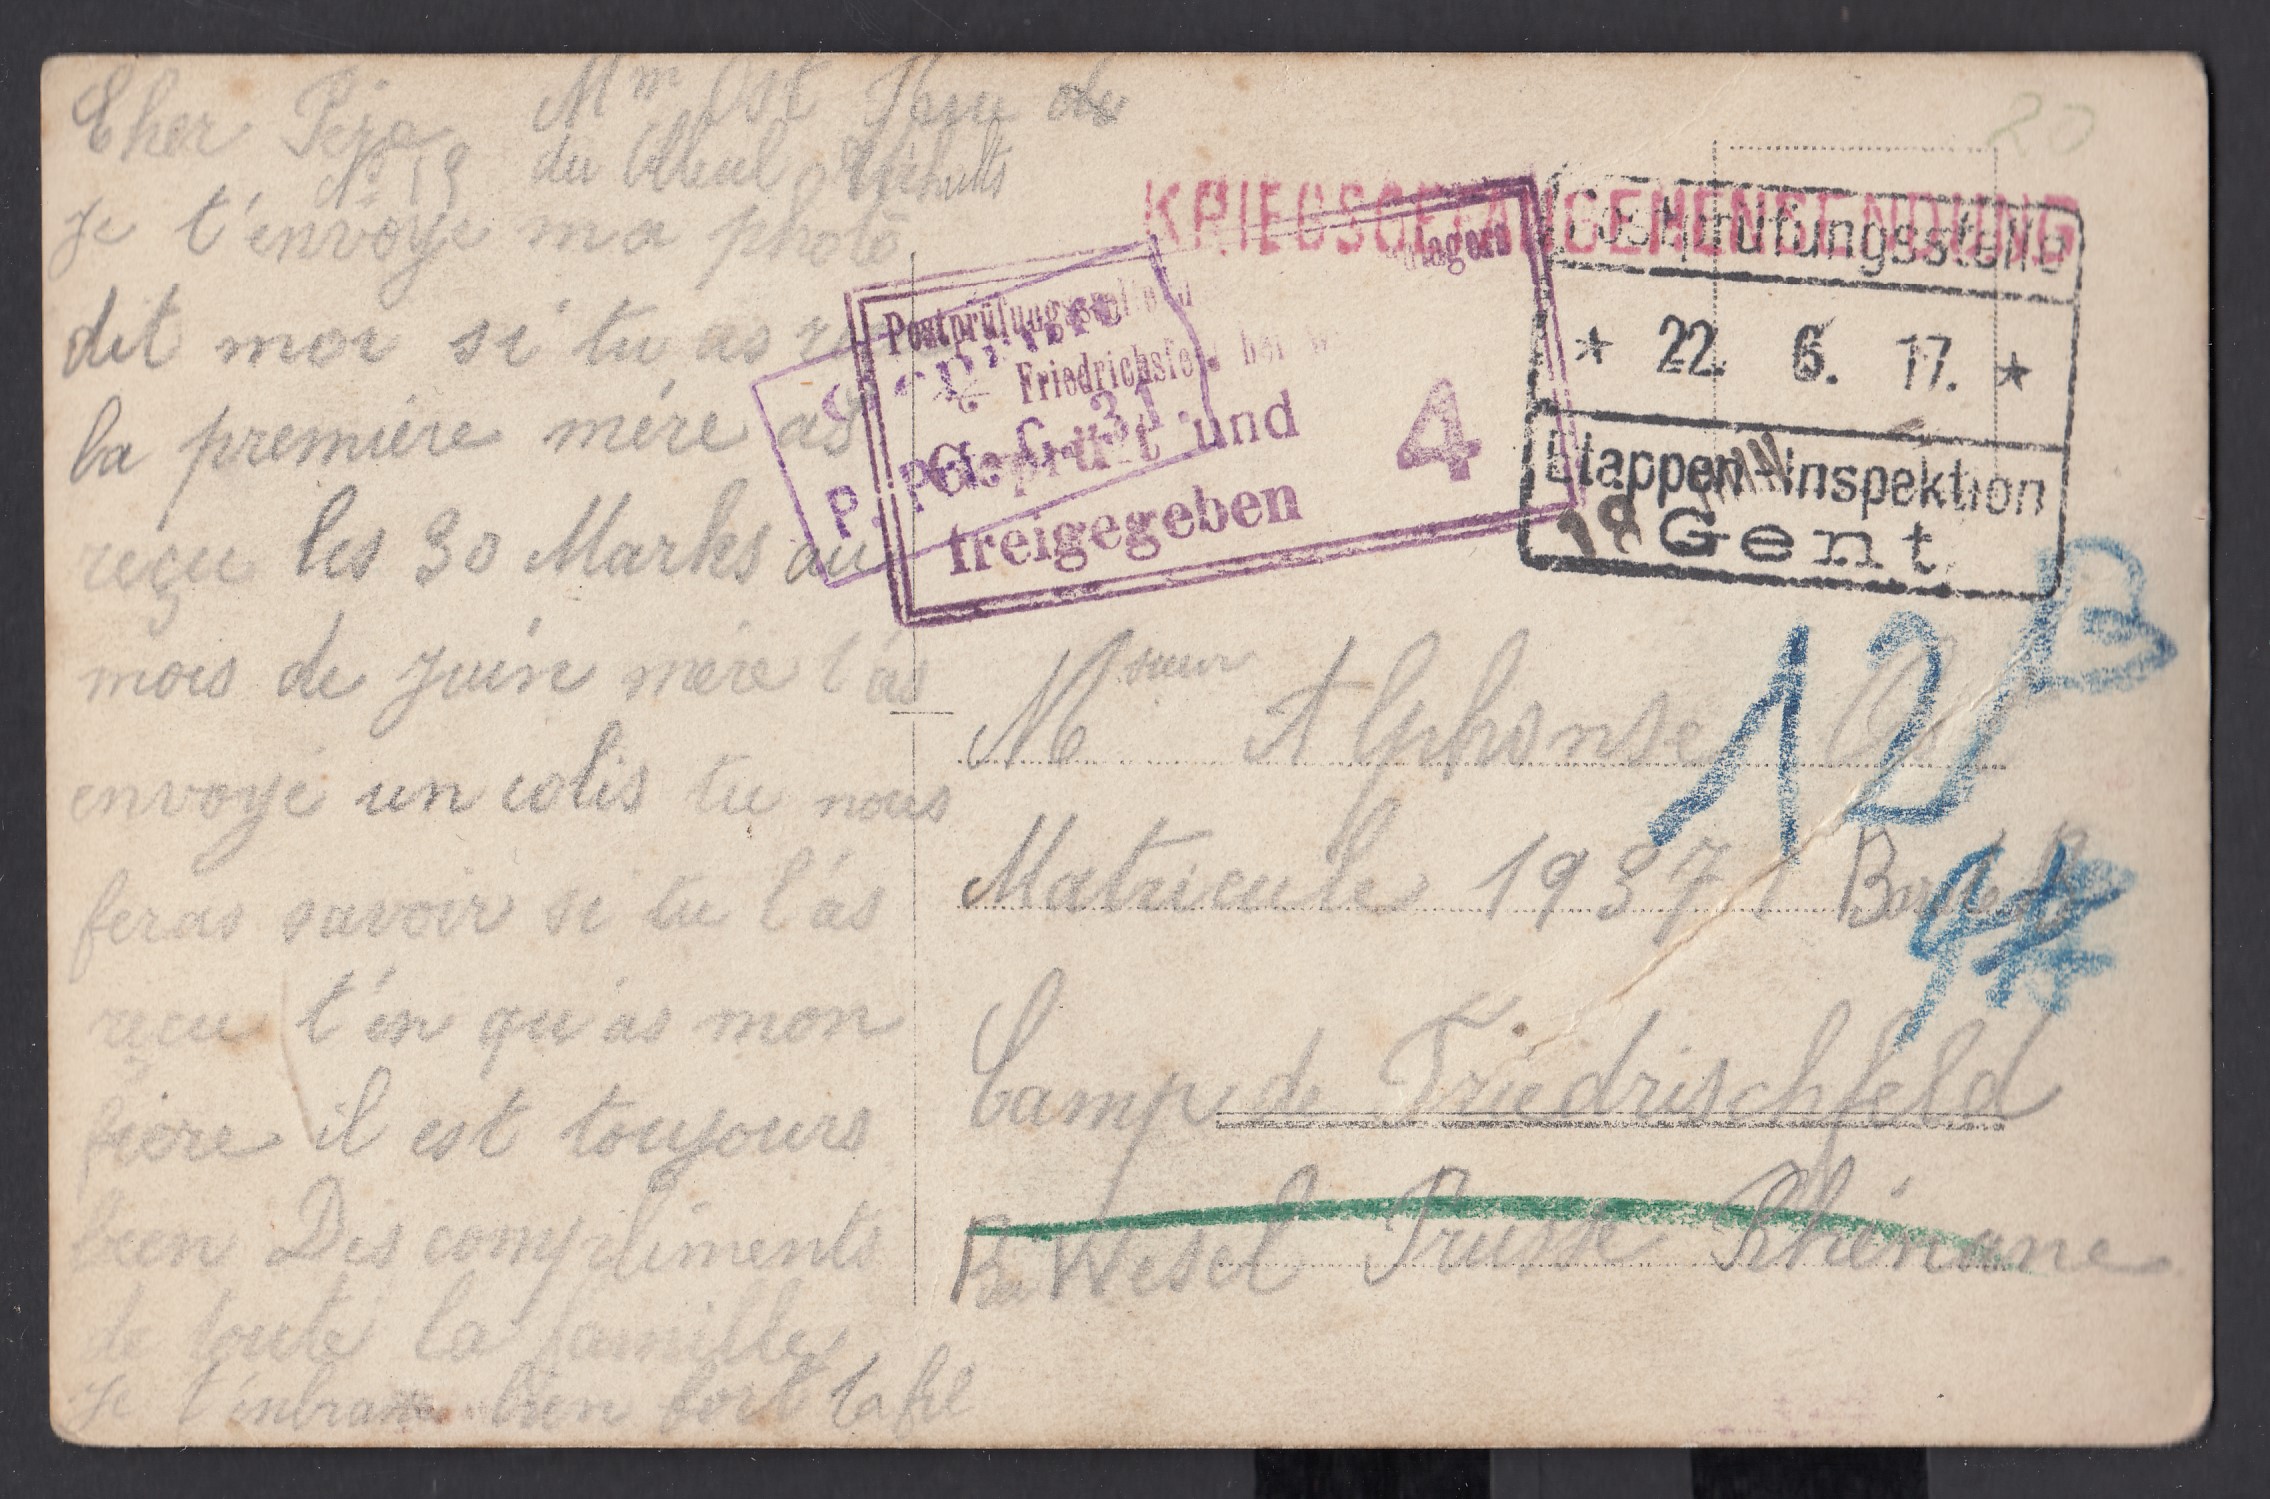 Cher Pépa
Mme Ost Rue
du
No 19
Je t'envoye ma photo
dit moi si tu as
la première mère as
reçu les 30 Marks au
mois de Juin mère l'as
envoyé un colis tu nous
feras savoir si tu l'as
reçu t'en qu'as mon
fière il est toujours
bien Dis compliments
de toute la famille
Je t'enbrasse bien fort ta fil
20
KRIEGSGEFANGENENSENDUNG
Postprüfungsstelle
lagers
Friedrichsfeld bei
Geprüft und
freigegeben
4
P. P.
31
Postprüfungsstelle
* 22. 6. 17. *
Etappen-Inspektion
Gent
18 JUIN
12 B
Msieur Alphonse
Matricule 19371
Camp de Friedrischfeld
Bei Wesel Prusse Rhénane